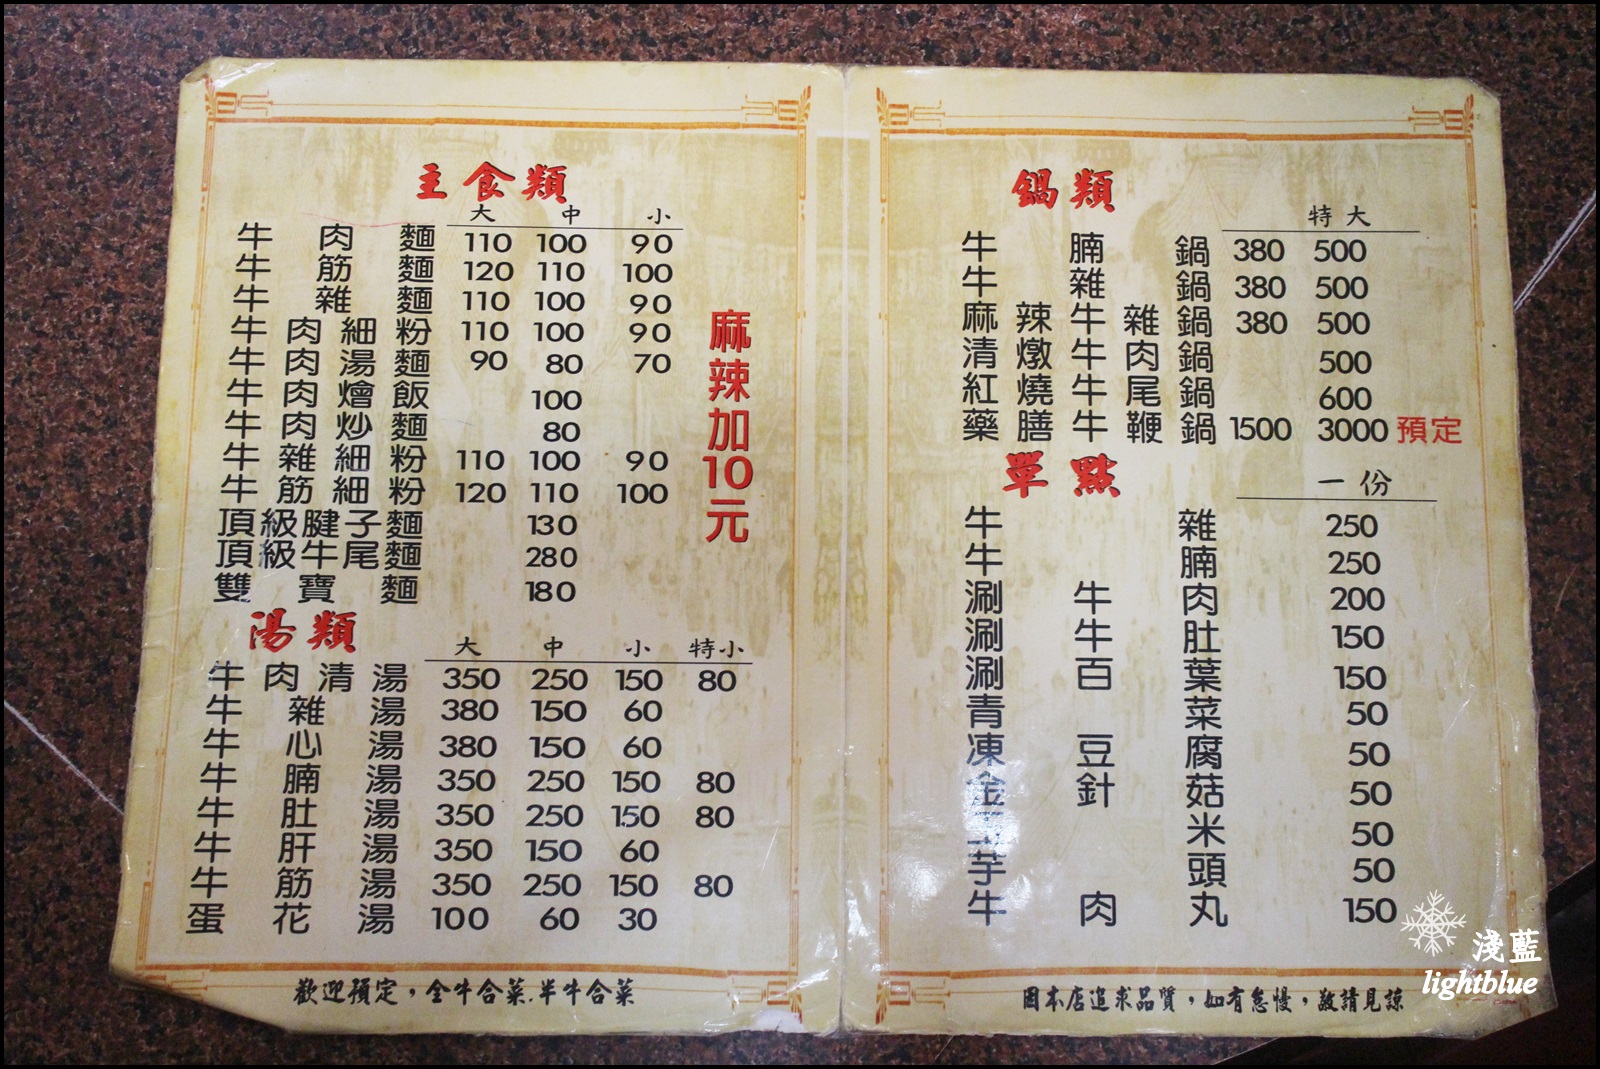 主食類
大 中 小
牛肉麵 110 100 90
牛筋麵 120 110 100
牛雜麵 110 100 90
牛肉細粉 110 100 90
牛肉湯麵 90 80 70
牛肉燴飯 100
牛肉炒麵 80
牛雜細粉 110 100 90
牛筋細粉 120 110 100
頂級腱子麵 130
頂級牛尾麵 280
雙寶麵 180
麻辣加10元
湯類
大 中 小 特小
牛肉清湯 350 250 150 80
牛雜湯 380 150 60
牛心湯 380 150 60
牛腩湯 350 250 150 80
牛肚湯 350 250 150 80
牛肝湯 350 150 60
牛筋湯 350 250 150 80
蛋花湯 100 60 30
歡迎預定，全牛合菜.半牛合菜
鍋類
特大
牛腩鍋 380 500
牛雜鍋 380 500
麻辣牛雜鍋 380 500
清燉牛肉鍋 500
紅燒牛尾鍋 600
藥膳牛鞭鍋 1500 3000 預定
單點
一份
牛雜 250
牛腩 250
涮牛肉 200
涮牛肚 150
涮百葉 150
青菜 50
凍豆腐 50
金針菇 50
米 50
芋頭 50
牛肉丸 150
因本店追求品質，如有怠慢，敬請見諒
淺藍
lightblue